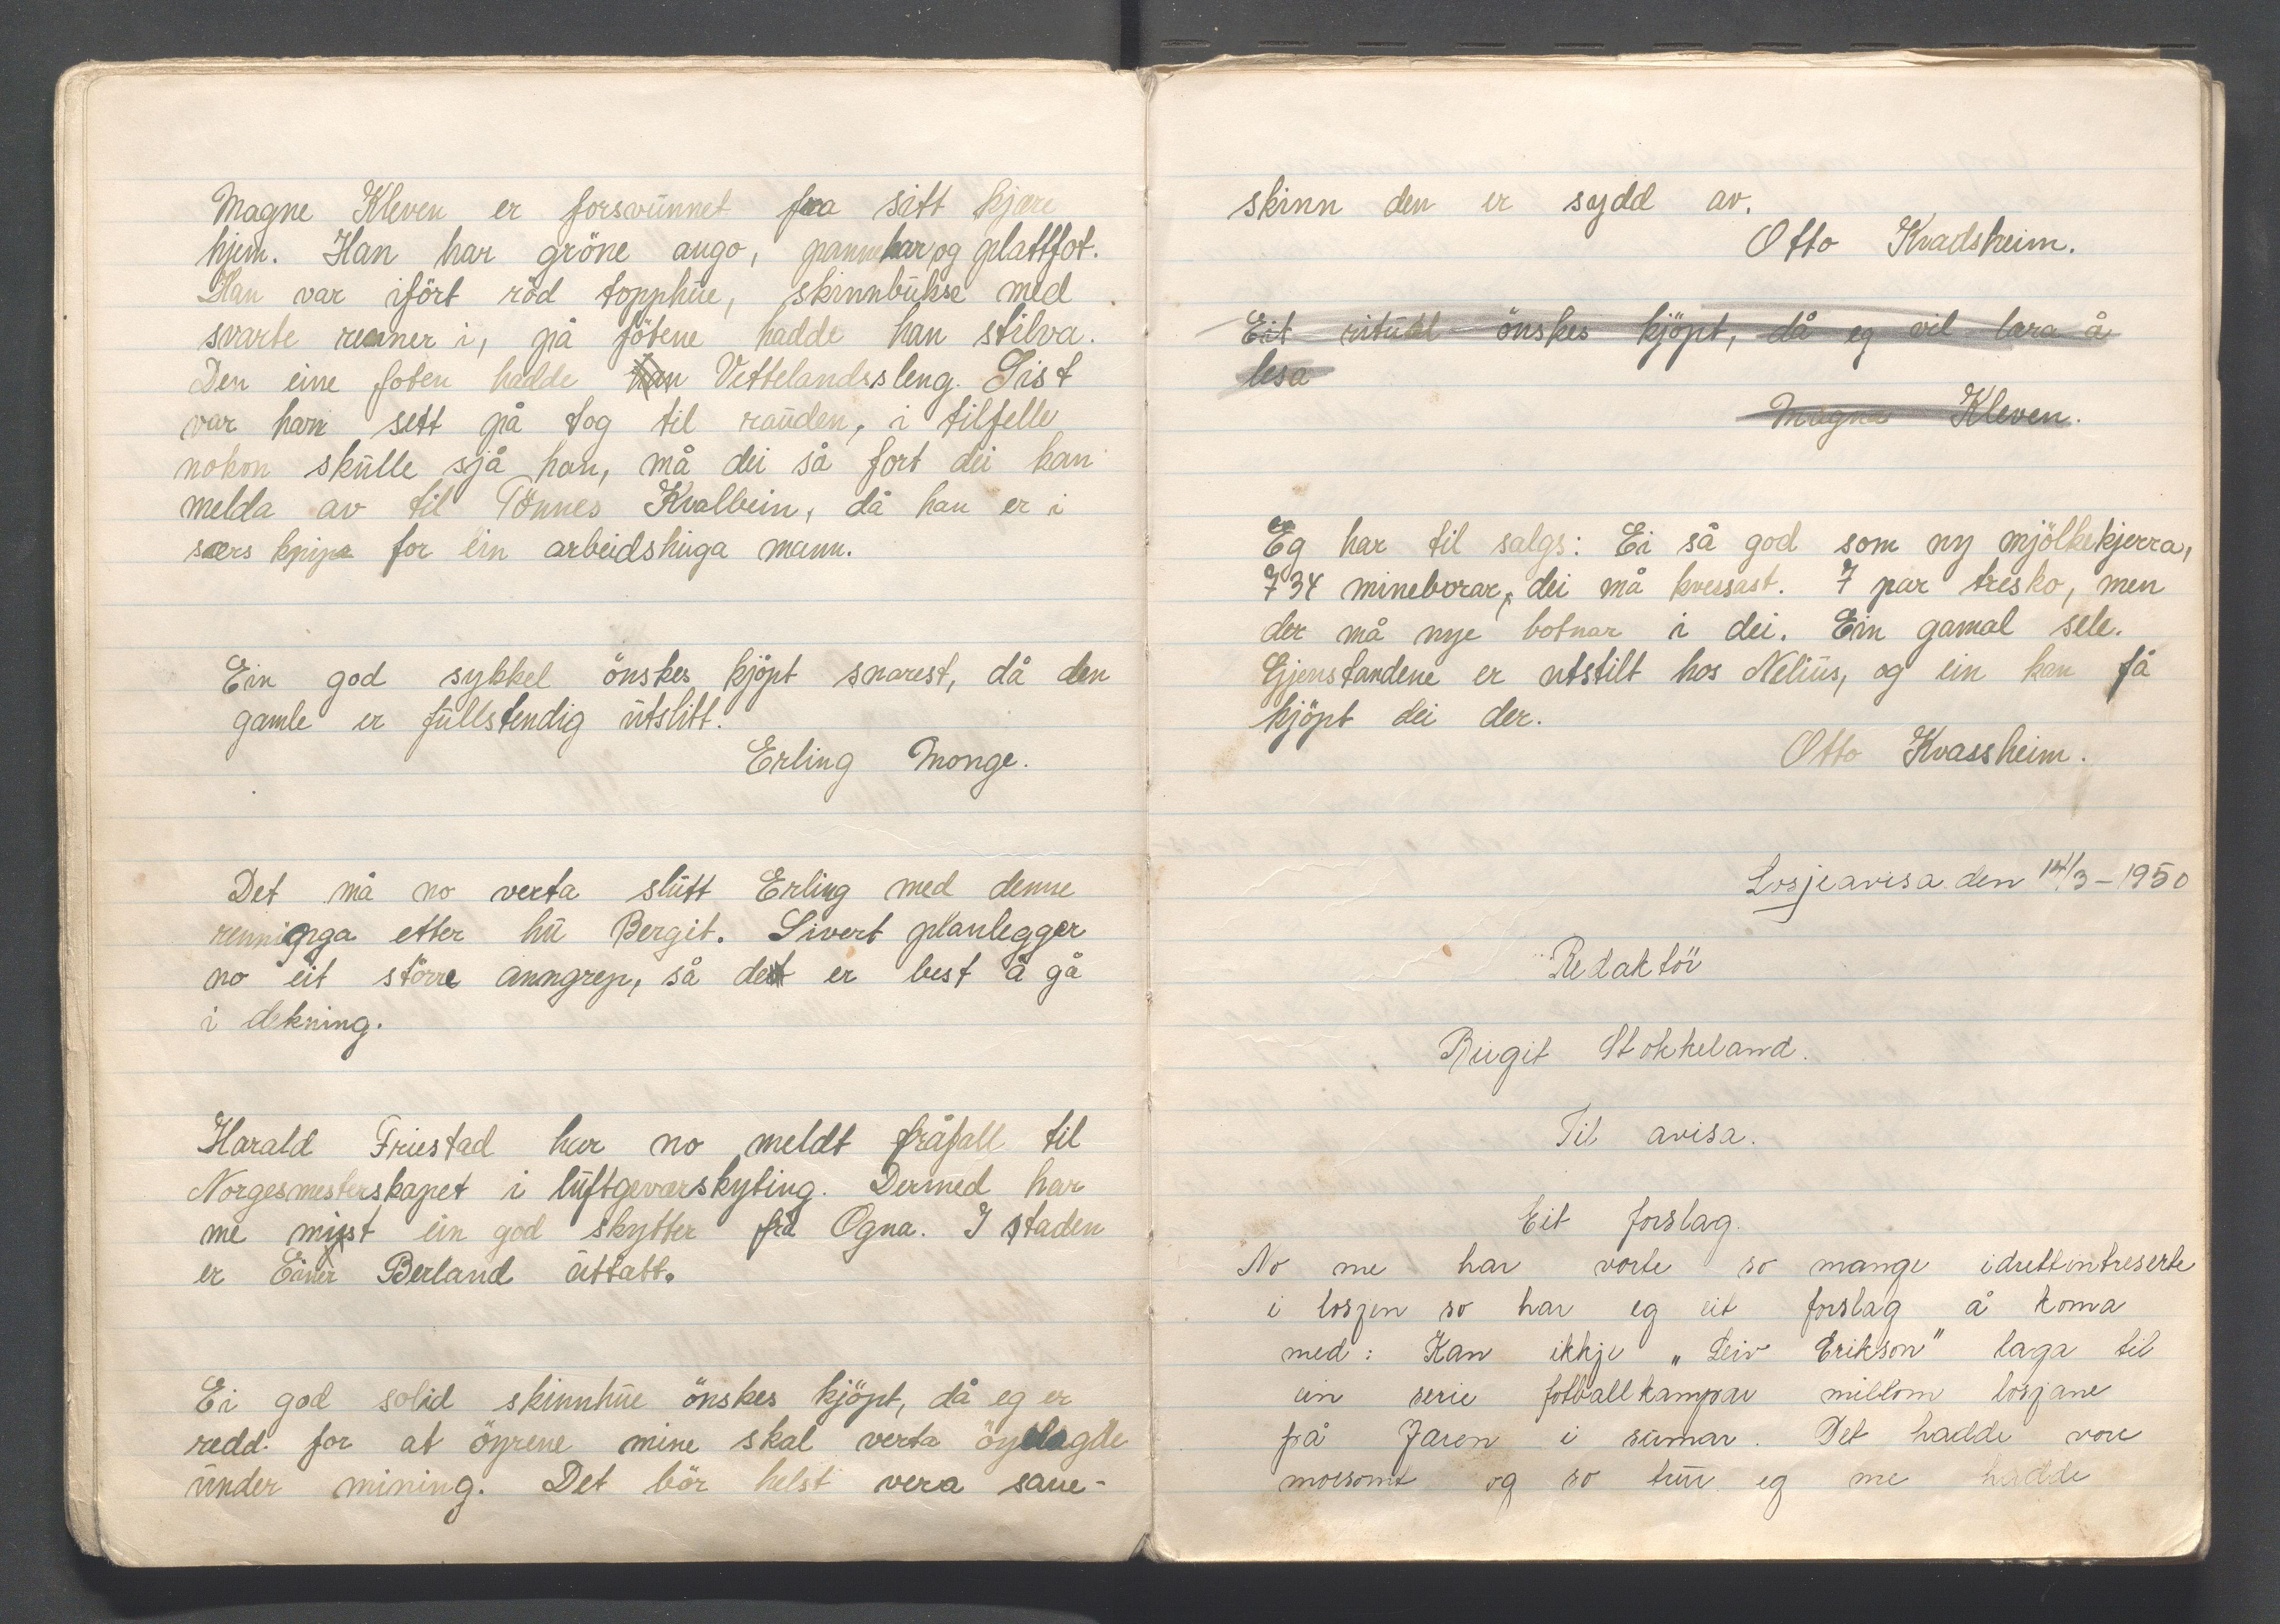 Magne Kleven er forsvunnet fra sitt kjære
hjem. Han har gröne augo, pannehar og plattfot.
Han var ifört röd topphue, skinnbukse med
svarte renner i, på fötene hadde han stilva.
Den eine foten hadde han Vettelandssleng. Sist
var han sett på tog til rauden, i tilfelle
nokon skulle sjå han, må dei så fort dei kan
melda av til Tönnes Kvalbein, då han er i
særs knipa for ein arbeidshuga mann.
Ein god sykkel önskes kjöpt snarest, då den
gamle er fullstendig utslitt.
Erling Monge.
Det må no verta slutt Erling med denne
renninga etter hu Bergit. Sivert planlegger
no eit större anngrep, så det er best å gå
i dekning.
Harald Friestad har no meldt fråfall til
Norgesmesterskapet i luftgeværskyting. Dermed har
me mist ein god skytter frå Ogna. I staden
er Einer Berland uttatt.
Ei god solid skinnhue önskes kjöpt, då eg er
redd for at öyrene mine skal verta öyelagde
under mining. Det bör helst vera saue-
skinn den er sydd av.
Otto Kvadsheim.
Eit ritual önskes kjöpt, då eg vil lara å
lesa
Magne Kleven.
Eg har til salgs: Ei så god som ny mjölkekjerra,
734 mineborar, dei må kvessast. 7 par tresko, men
der må nye botnar i dei. Ein gamal sele.
Gjenstandene er utstilt hos Nelius, og ein kan få
kjöpt dei der.
Otto Kvassheim.
Losjeavisa den 14/3-1950
Redaktör
Birgit Stokkeland.
Til avisa.
Eit forslag.
No me har vorte so mange idrettintreserte
i losjen so har eg eit forslag å koma
med: Kan ikkje „Leiv Erikson" laga til
ein serie fotballkampar millom losjane
på Jaren i sumar. Det hadde vore
morsomt og so trur eg me hadde